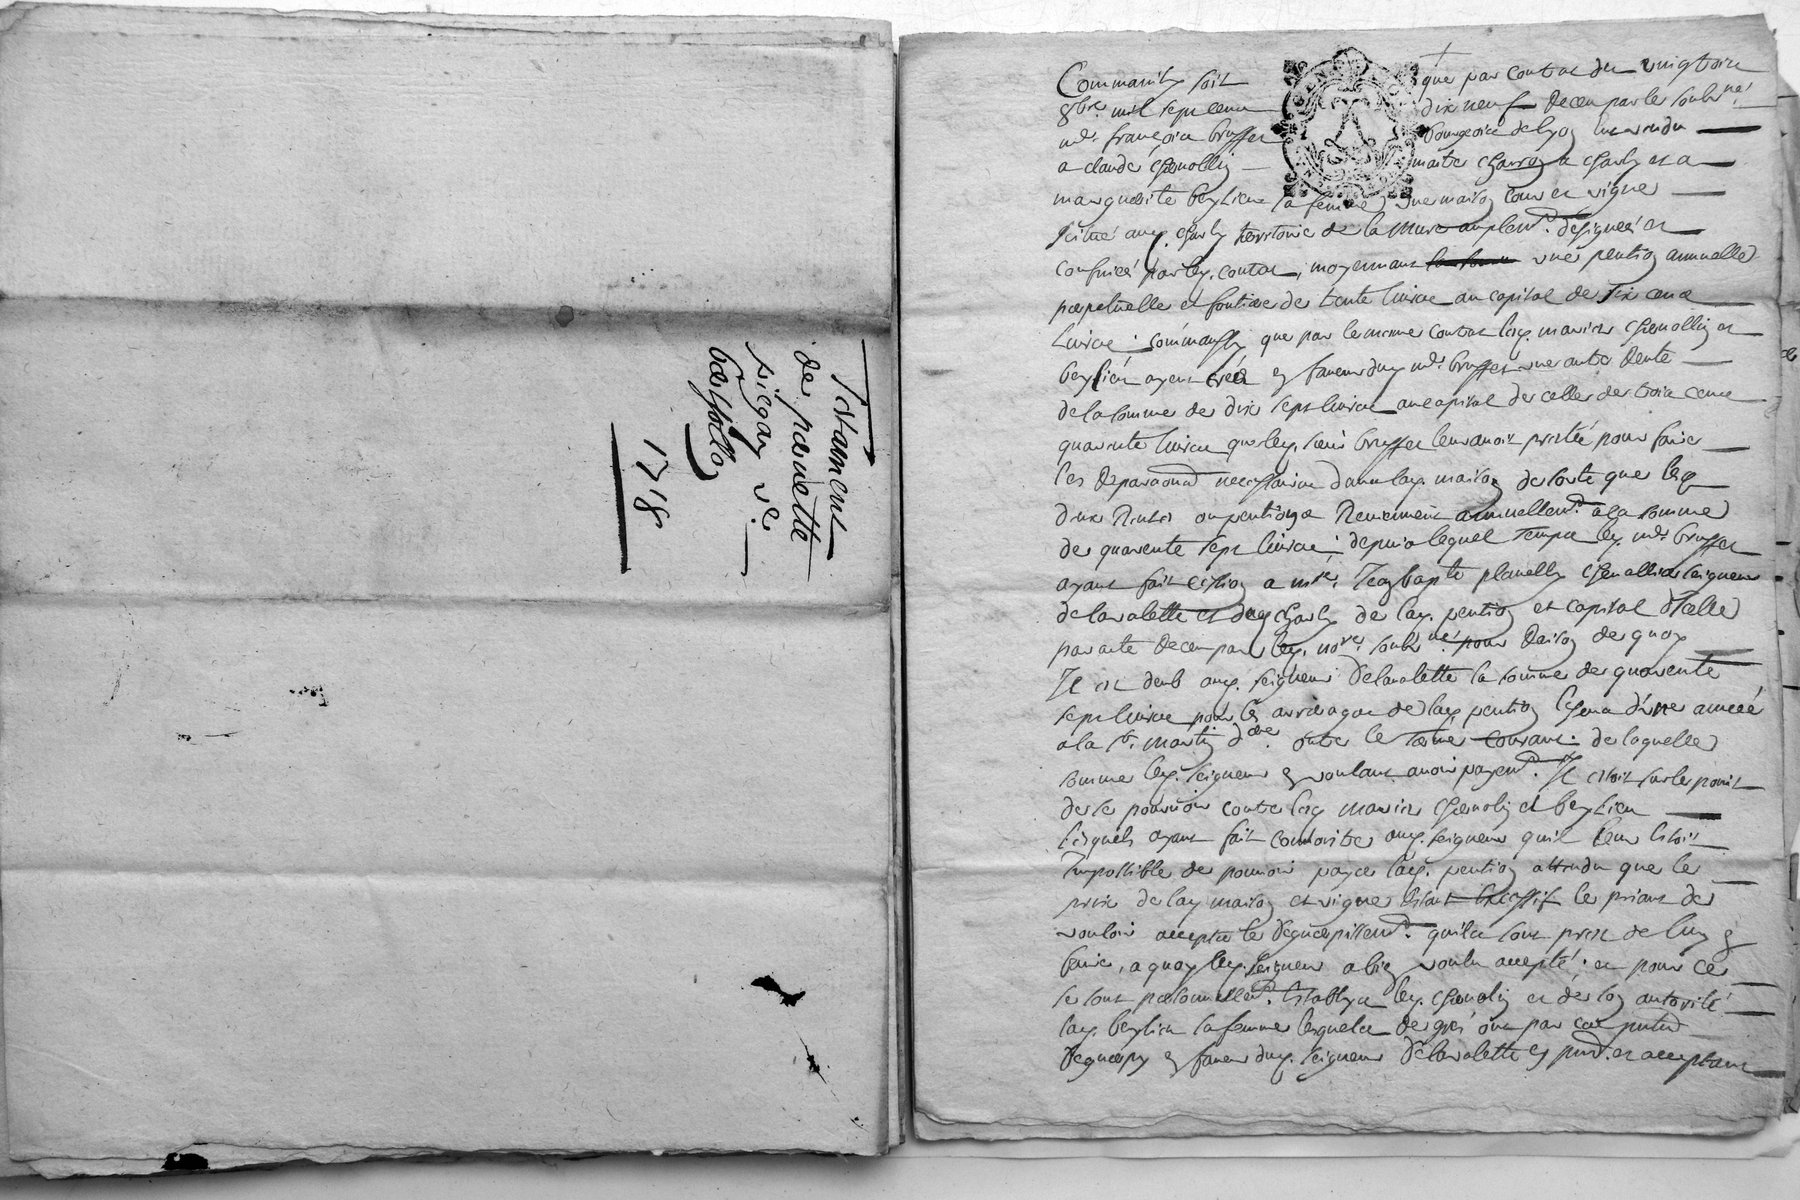 Testament
de pernette
1718
Comme ainsy soit que par contrat du vingtroix
8bre mil sept cent dix neuf receu par le soubs.né
mr françois brosset bourgeois de lyon
a claude Chenollin maitre charron a charly et a
marguerite sa femme une maison cour et vigne
scitué aud. charly territoire de la Mure amplemt. designeé et
confineé par led. contrat, moyennant une pention annuelle
perpetuelle et fonciere de trente livres au capital de six cent
livres. comm'aussy que par le meme contrat lesd. mariés chenollin et
ayent creé en faveur dud. mr. brosset une autre rente
de la somme de dix sept livres au capital de celle de trois cent
quarente livres que led. sieur brosset leur avoit pretée pour faire
les reparations necessaires dans lad. maison de sorte que lesd.
deux rentes ou pentions reviennent annuellemt. a la somme
de quarente sept livres. depuis lequel tempts led. mr. brosset
ayant fait cession a mre. Jean bapte planelly chevallier seigneur
de lavalette et dud. charly de lad. pention et capital d'icelle
par acte receu par led. nore. soubs.né pour raison de quoy
Il est deub aud. seigneur de lavalette la somme de quarente
sept livres pour les arrerages de lad. pention d'une anneé
a la st. martin dre. outre le terme courant. de laquelle
somme led. seigneur en voulant avoir payemt. Il estoit sur le point
de se pourvoir contre lesd. mariés chenolin et
lesquels ayant fait connoitre aud. seigneur quil leur estoit
Impossible de pouvoir payer lad. pention attendu que le
prix de lad. maison et vigne estant excessif le priant de
vouloir accepter le deguerpissemt. quils sont prest de luy en
faire, a quoy led. seigneur a bien voulu accepté; et pour ce
se sont personnellemt. establys led. chenolin et de son autorité
lad. sa femme lesquels de gré ont par ces pntes
deguerpy en faveur dud. seigneur de lavalette cy pnt. et acceptant